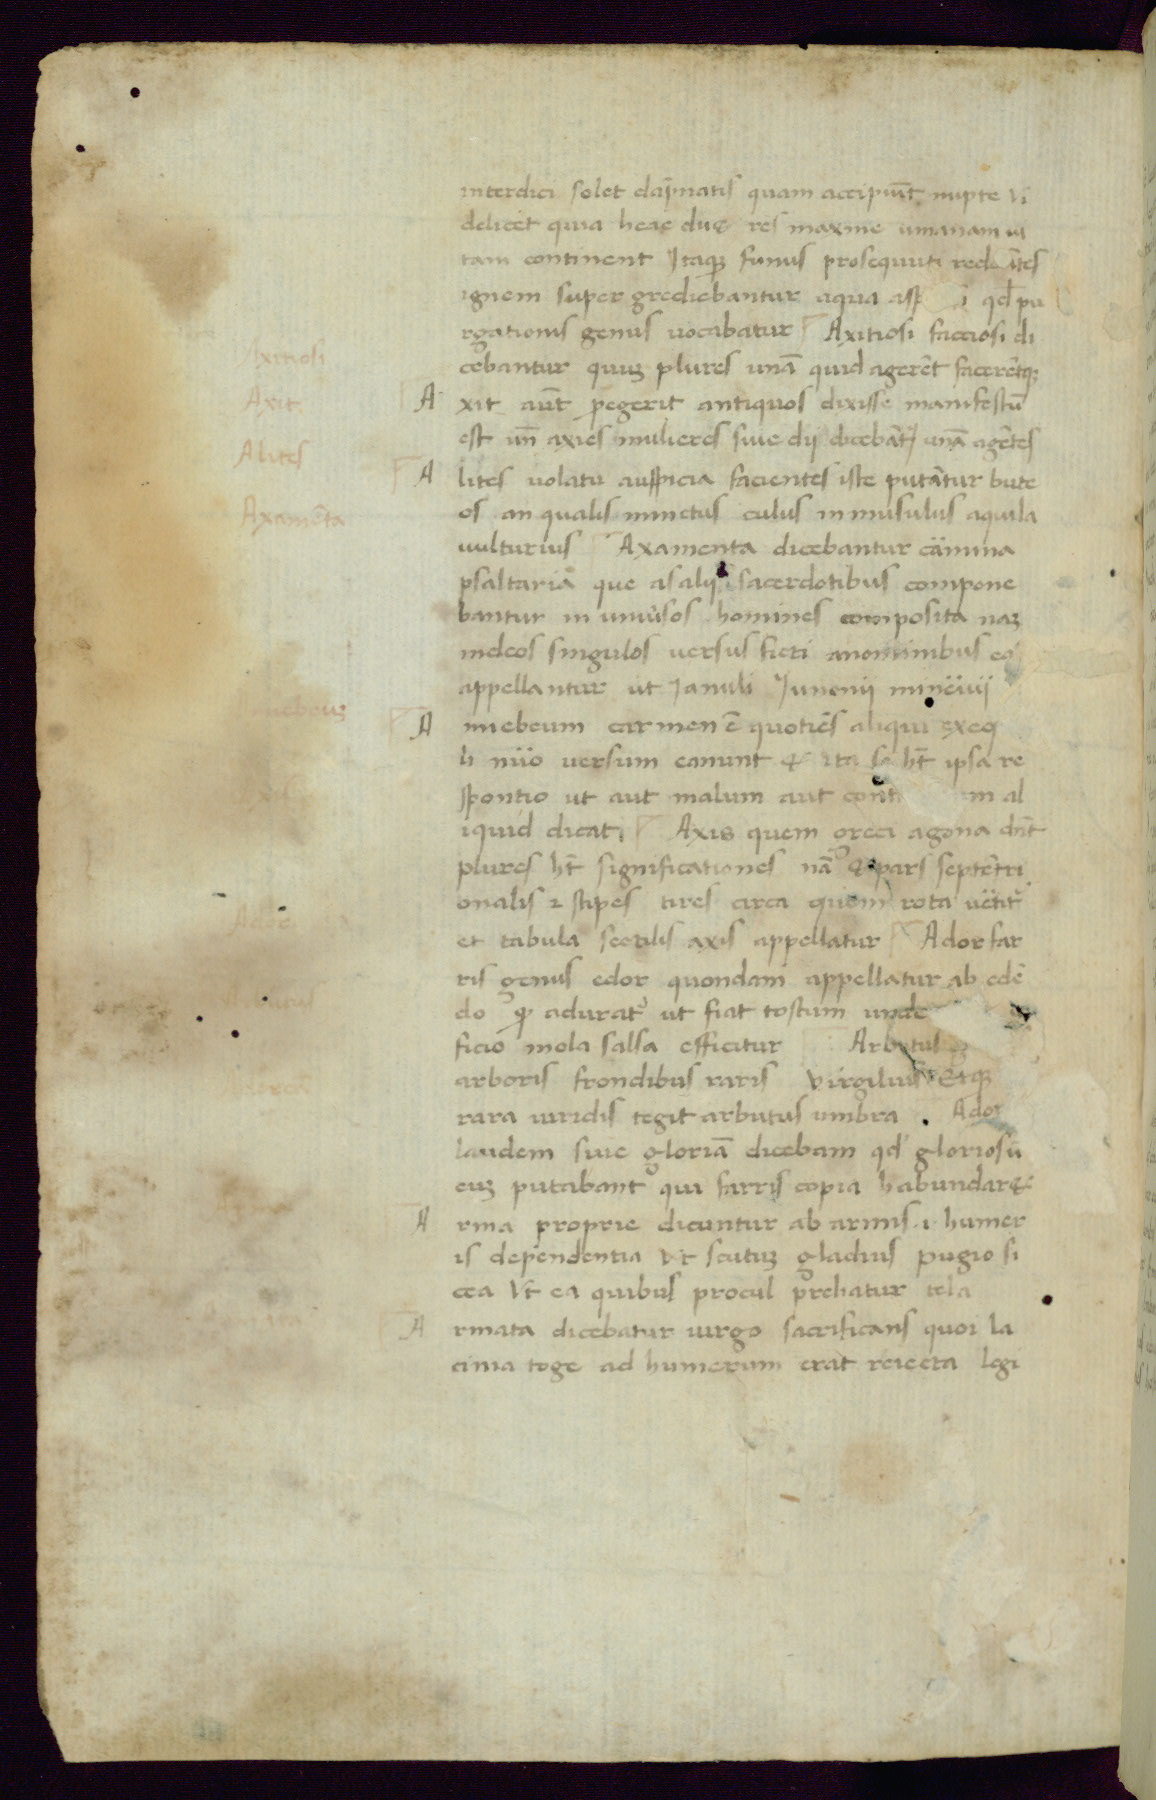 interdici solet dāpnatis quam accipiūt nupte vi
delicet quia heae due res maxime umanam ui
tam continent Itaqꝫ funus prosequuti redeūtes
ignem super grediebantur aqua asp i qd̄ pu
rgationis genus uocabatur Axitiosi facciosi di
cebantur quuꝫ plures unā quid agerēt facerētqꝫ
Axitiosi
Axit
A xit aūt pegerit antiquos dixisse manifestū
est un̄ axies mulieres siue dij dicebāt unā agētes
Alites
A lites uolatu auspicia facientes iste putātur bute
os an qualis minctus culus inmusulus aquila
Axamēta
uulturius Axamenta dicebantur cāmina
psaltaria que asalijs sacerdotibus compone
bantur in uniūsos homines composita naꝫ
indeos singulos uersus fieri anominibus eo
appellantur ut Januli Junonij minēiuij
A miebeum carmen ē quotiēs aliqui exeq
li nūo uersum canunt & ita se hn̄t ipsa re
spontio ut aut malum aut cont m al
iquid dicat Axis quem greci agona dn̄t
plures hn̄t significationes nā & pars septētri
onalis ⁊ stipes tires circa quem rota uētit᷑
Ador
et tabula sectilis axis appellatur Ador far
ris genus edor quondam appellatur ab edē
do ꝙ adurat᷑ ut fiat tostum unde
ficio mola salsa efficitur Arbutul
arboris frondibus raris Virgilius Etqꝫ
rara uiridis tegit arbutus umbra . Ador
laudem siue gloriā dicebam qd̄ gloriosū
euꝫ putabant qui farris copia habundar&
A rma proprie dicuntur ab armis .i. humer
is dependentia Vt scutuꝫ gladius pugio si
cca Vt ea quibus procul prehatur tela
A rmata dicebatur uirgo sacrificans quoi la
cinia toge ad humerum erat reiecta legi